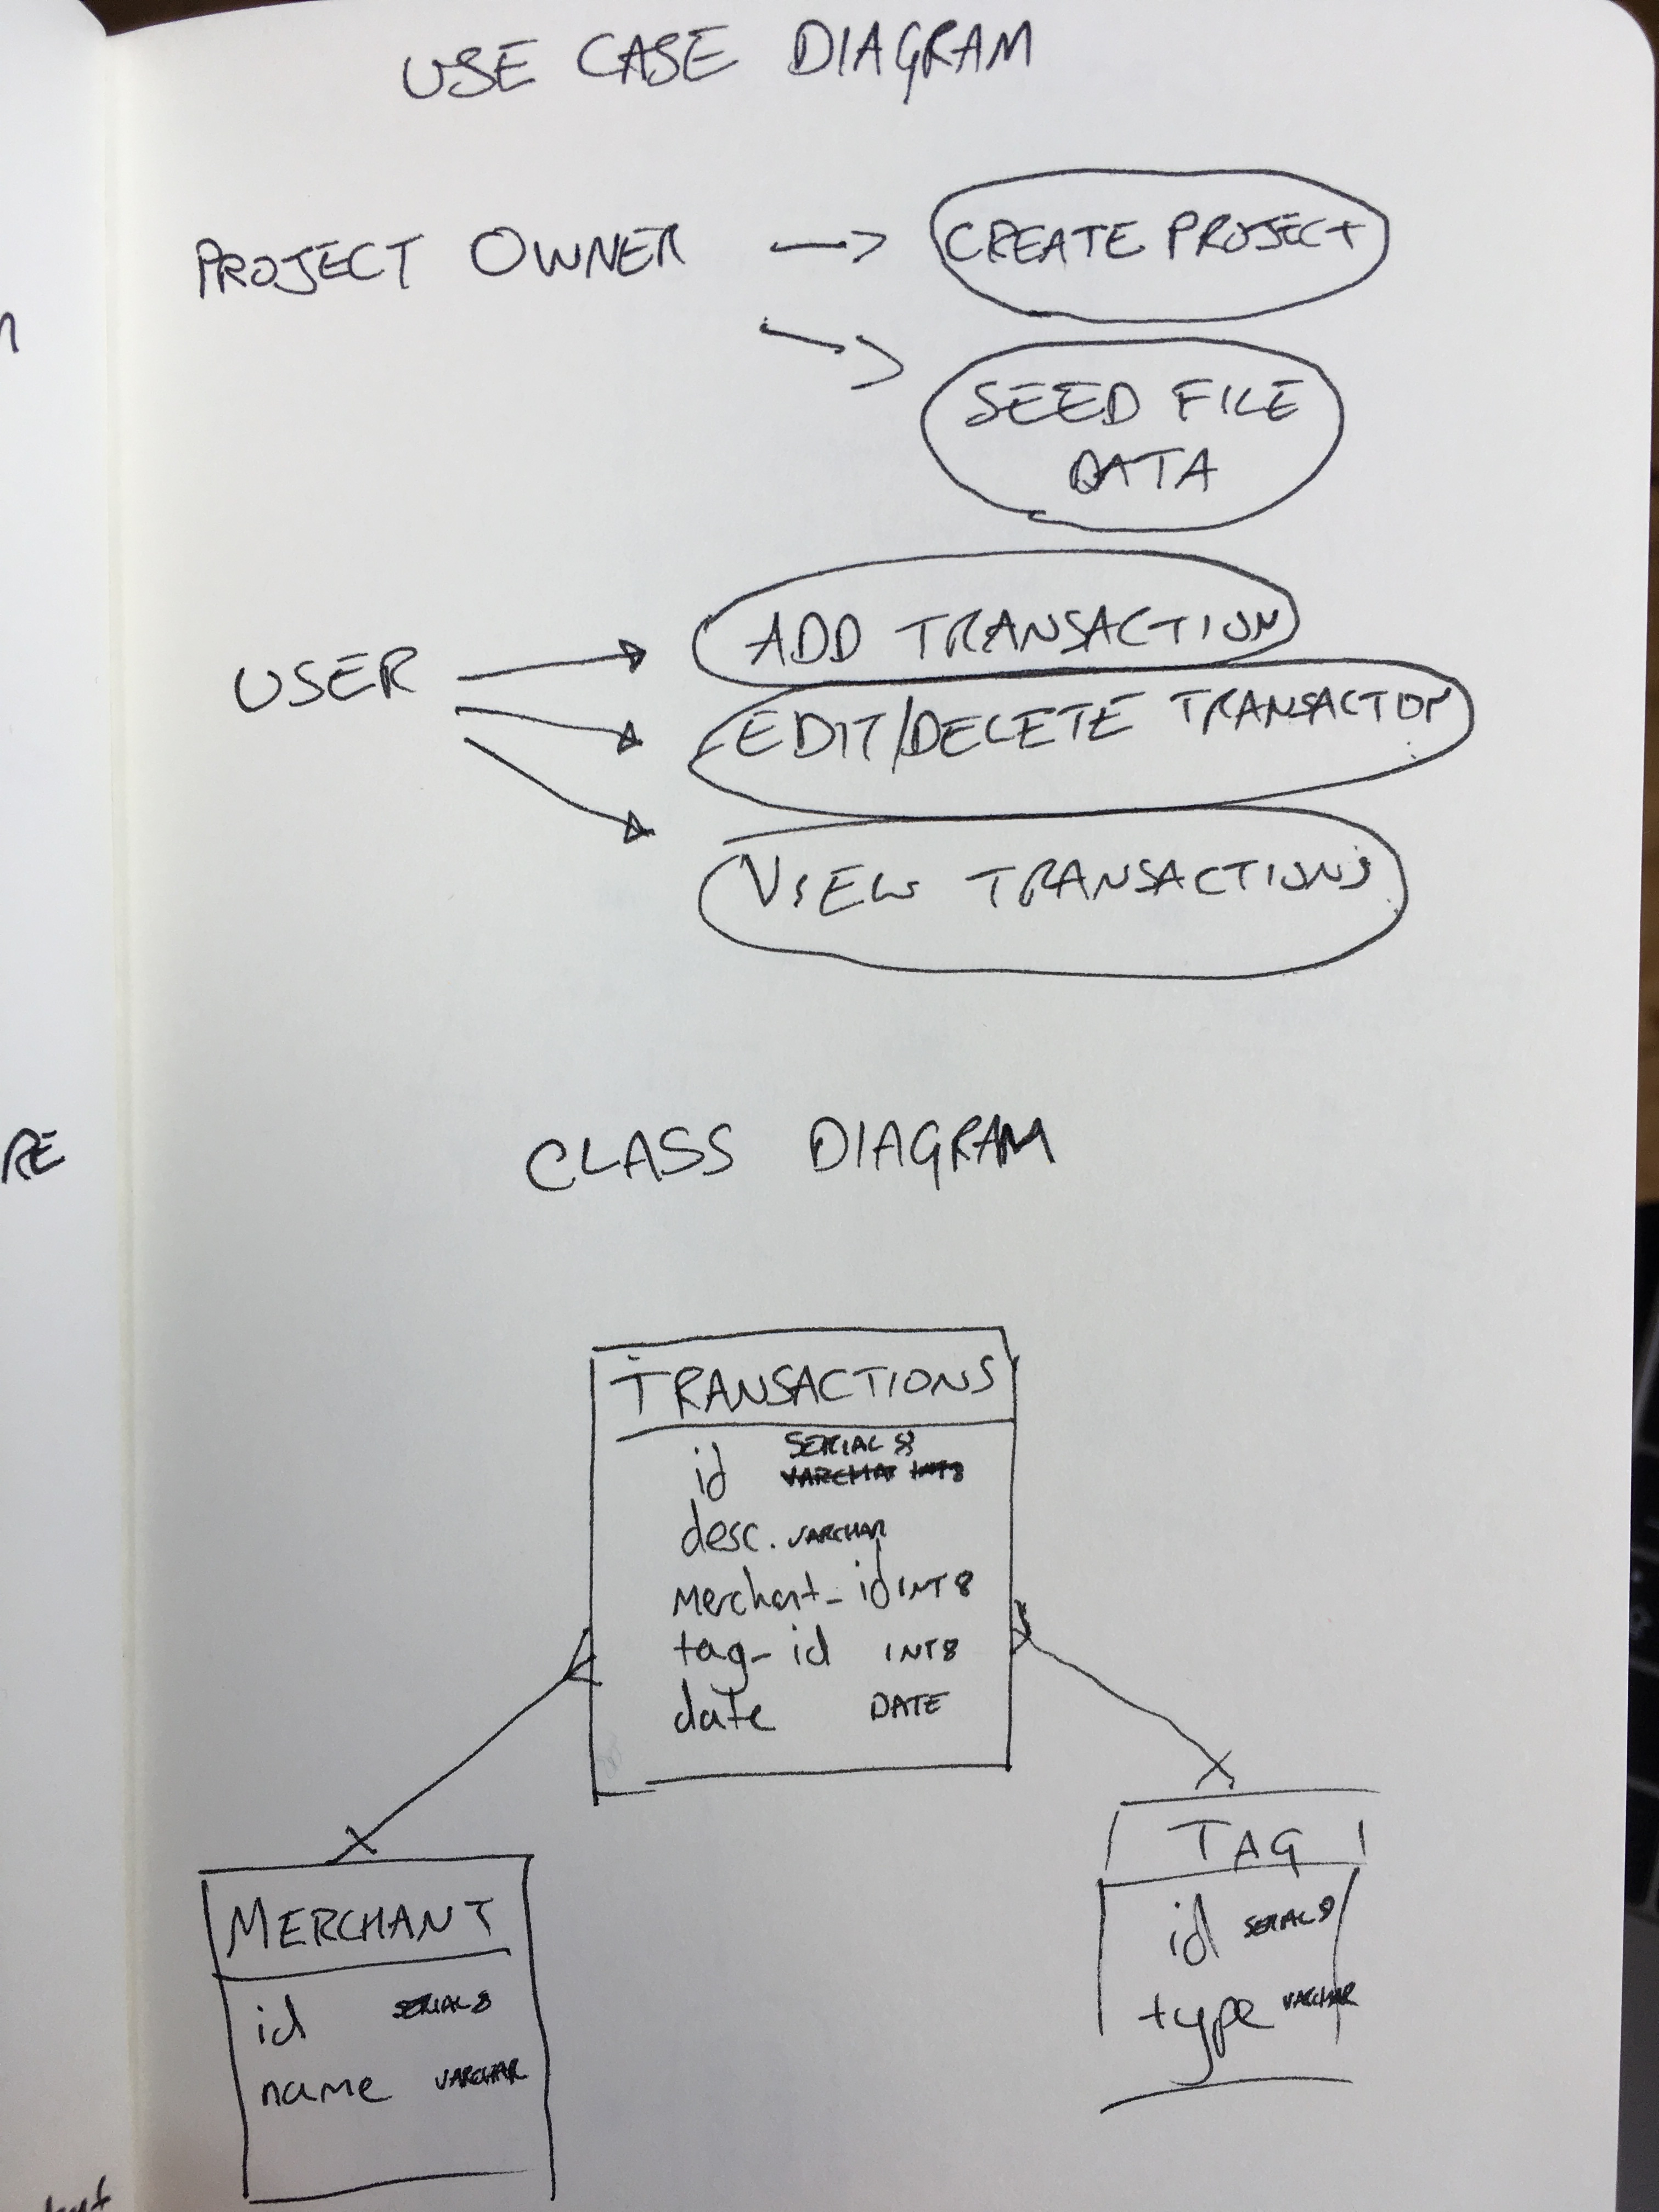 USE CASE DIAGRAM
PROJECT OWNER
CREATE PROJECT
SEED FILE
DATA
USER
ADD TRANSACTION
EDIT/DELETE TRANSACTION
VIEW TRANSACTIONS
RE
CLASS DIAGRAM
TRANSACTIONS
id SERIAL8
VARCHAR INT8
desc. VARCHAR
Merchant_id INT8
tag_id INT8
date DATE
MERCHANT
id SERIAL8
name VARCHAR
TAG
id SERIAL8
type VARCHAR